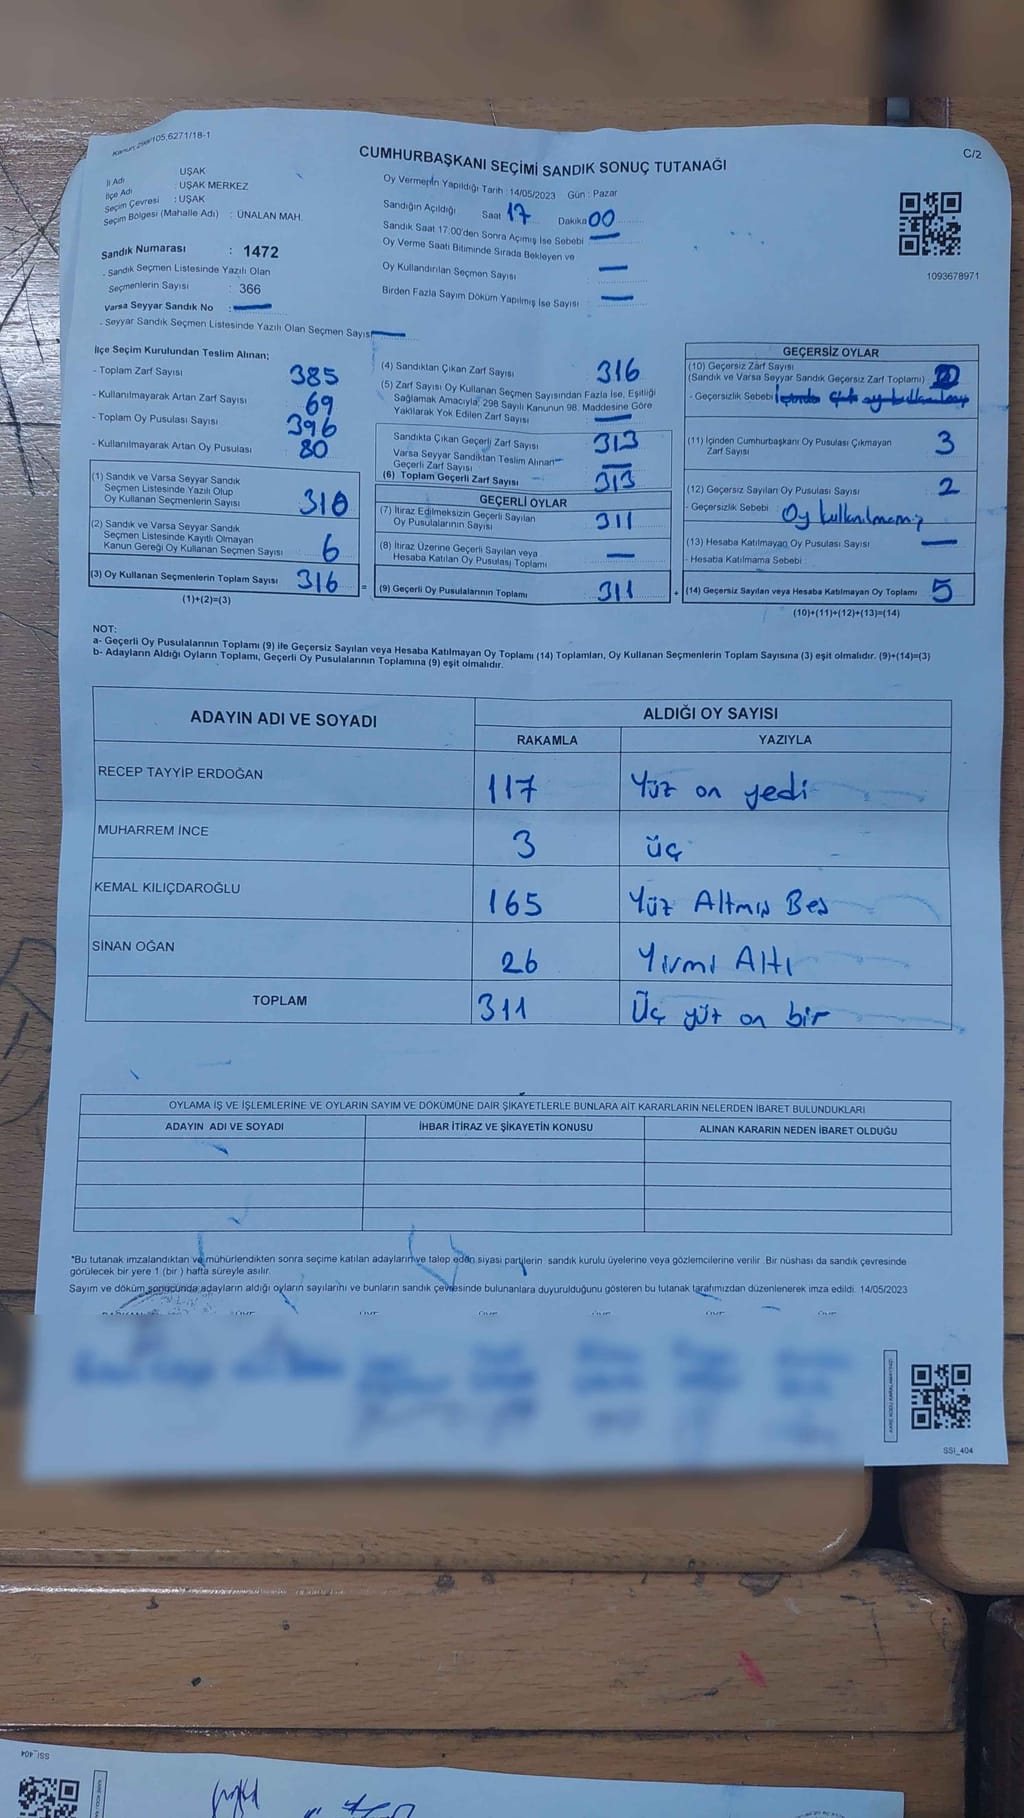 Kanun: 298/105,6271/18-1
CUMHURBAŞKANI SEÇİMİ SANDIK SONUÇ TUTANAĞI
C/2
İl Adı UŞAK
İlçe Adı : UŞAK MERKEZ
Seçim Çevresi : UŞAK
Seçim Bölgesi (Mahalle Adı) : ÜNALAN MAH.
Oy Vermenin Yapıldığı Tarih : 14/05/2023 Gün : Pazar
Sandığın Açıldığı Saat 17 Dakika 00
Sandık Saat 17:00'den Sonra Açımış İse Sebebi
Oy Verme Saati Bitiminde Sırada Bekleyen ve
Oy Kullandırılan Seçmen Sayısı
Birden Fazla Sayım Döküm Yapılmış İse Sayısı
1093678971
Sandık Numarası : 1472
- Sandık Seçmen Listesinde Yazılı Olan
Seçmenlerin Sayısı : 366
Varsa Seyyar Sandık No :
- Seyyar Sandık Seçmen Listesinde Yazılı Olan Seçmen Sayısı
İlçe Seçim Kurulundan Teslim Alınan;
- Toplam Zarf Sayısı 385
- Kullanılmayarak Artan Zarf Sayısı 69
- Toplam Oy Pusulası Sayısı 396
- Kullanılmayarak Artan Oy Pusulası 80
(1) Sandık ve Varsa Seyyar Sandık
Seçmen Listesinde Yazılı Olup
Oy Kullanan Seçmenlerin Sayısı 310
(2) Sandık ve Varsa Seyyar Sandık
Seçmen Listesinde Kayıtlı Olmayan
Kanun Gereği Oy Kullanan Seçmen Sayısı 6
(3) Oy Kullanan Seçmenlerin Toplam Sayısı 316
(1)+(2)=(3)
=
(4) Sandıktan Çıkan Zarf Sayısı 316
(5) Zarf Sayısı Oy Kullanan Seçmen Sayısından Fazla İse, Eşitliği
Sağlamak Amacıyla, 298 Sayılı Kanunun 98. Maddesine Göre
Yakılarak Yok Edilen Zarf Sayısı
Sandıkta Çıkan Geçerli Zarf Sayısı 313
Varsa Seyyar Sandıktan Teslim Alınan
Geçerli Zarf Sayısı
(6) Toplam Geçerli Zarf Sayısı 313
GEÇERLİ OYLAR
(7) İtiraz Edilmeksizin Geçerli Sayılan
Oy Pusulalarının Sayısı 311
(8) İtiraz Üzerine Geçerli Sayılan veya
Hesaba Katılan Oy Pusulası Toplamı
(9) Geçerli Oy Pusulalarının Toplamı 311
+
GEÇERSİZ OYLAR
(10) Geçersiz Zarf Sayısı
(Sandık ve Varsa Seyyar Sandık Geçersiz Zarf Toplamı)
- Geçersizlik Sebebi
(11) İçinden Cumhurbaşkanı Oy Pusulası Çıkmayan
Zarf Sayısı 3
(12) Geçersiz Sayılan Oy Pusulası Sayısı 2
- Geçersizlik Sebebi : Oy kullanılmamış
(13) Hesaba Katılmayan Oy Pusulası Sayısı
- Hesaba Katılmama Sebebi :
(14) Geçersiz Sayılan veya Hesaba Katılmayan Oy Toplamı 5
(10)+(11)+(12)+(13)=(14)
NOT:
a- Geçerli Oy Pusulalarının Toplamı (9) ile Geçersiz Sayılan veya Hesaba Katılmayan Oy Toplamı (14) Toplamları, Oy Kullanan Seçmenlerin Toplam Sayısına (3) eşit olmalıdır. (9)+(14)=(3)
b- Adayların Aldığı Oyların Toplamı, Geçerli Oy Pusulalarının Toplamına (9) eşit olmalıdır.
ADAYIN ADI VE SOYADI
ALDIĞI OY SAYISI
RAKAMLA YAZIYLA
RECEP TAYYİP ERDOĞAN 117 Yüz on yedi
MUHARREM İNCE 3 üç
KEMAL KILIÇDAROĞLU 165 Yüz Altmış Beş
SİNAN OĞAN 26 Yirmi Altı
TOPLAM 311 Üç yüz on bir
OYLAMA İŞ VE İŞLEMLERİNE VE OYLARIN SAYIM VE DÖKÜMÜNE DAİR ŞİKAYETLERLE BUNLARA AİT KARARLARIN NELERDEN İBARET BULUNDUKLARI
ADAYIN ADI VE SOYADI İHBAR İTİRAZ VE ŞİKAYETİN KONUSU ALINAN KARARIN NEDEN İBARET OLDUĞU
*Bu tutanak imzalandıktan ve mühürlendikten sonra seçime katılan adayların ve talep eden siyasi partilerin sandık kurulu üyelerine veya gözlemcilerine verilir. Bir nüshası da sandık çevresinde
görülecek bir yere 1 (bir ) hafta süreyle asılır.
Sayım ve döküm sonucunda adayların aldığı oyların sayılarını ve bunların sandık çevresinde bulunanlara duyurulduğunu gösteren bu tutanak tarafımızdan düzenlenerek imza edildi. 14/05/2023
KARE KODU KARALAMAYINIZ!
SSİ_404
SSİ_404